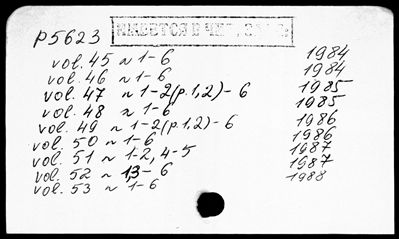 P5623 ИМЕЕТСЯ В ЧИТ. ЗАЛЕ
vol. 45 N 1-6 1984
vol. 46 N 1-6 1984
vol. 47 N 1-2(p.1,2)-6 1985
vol. 48 N 1-6 1985
vol. 49 N 1-2(p.1,2)-6 1986
vol. 50 N 1-6 1986
vol. 51 N 1-2, 4-5 1987
vol. 52 N 13-6 1987
vol. 53 N 1-6 1988